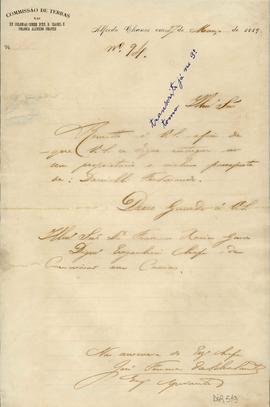 COMMISSÃO DE TERRAS
NAS
EX COLONIAS CONDE D'EU, D. ISABEL E
COLONIA ALFREDO CHAVES
Alfredo Chaves em 7 de Março de 1889
Nº 94.
transcrito já no 3º
tomo
Illmº Snr
Remetto a V.S. afim de
que V.S. se digne entregar ao
seu proprietario o incluso passaporte
de:
Deus Guarde á V.S.
Illmº Snr Dr Francisco Xavier
Digno Engenheiro Chefe da
Commissão em Caxias.
Na ausencia do Engº Chefe
José
Engº Ajudante
DOR 513